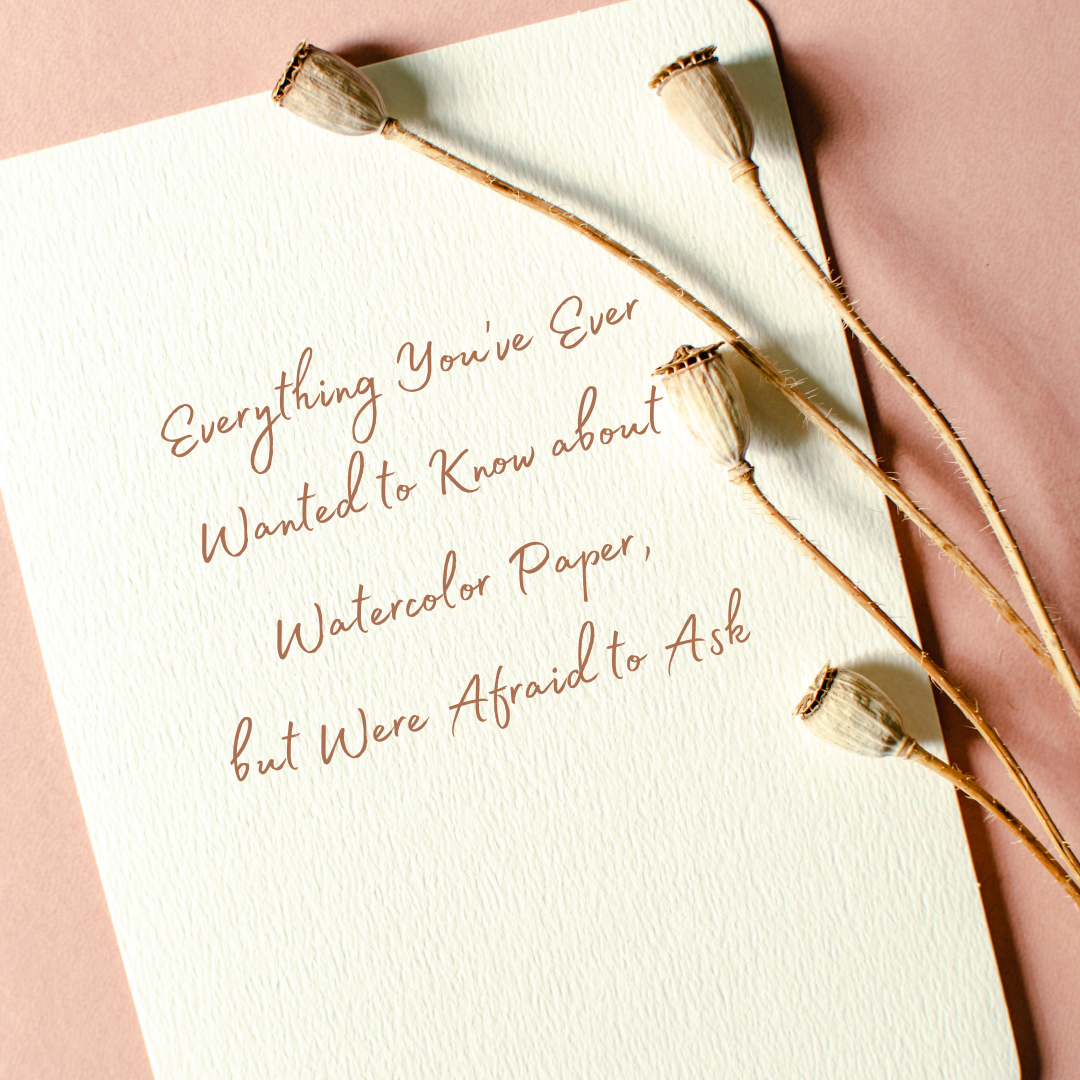 Everything You've Ever
Wanted to Know about
Watercolor Paper,
but Were Afraid to Ask